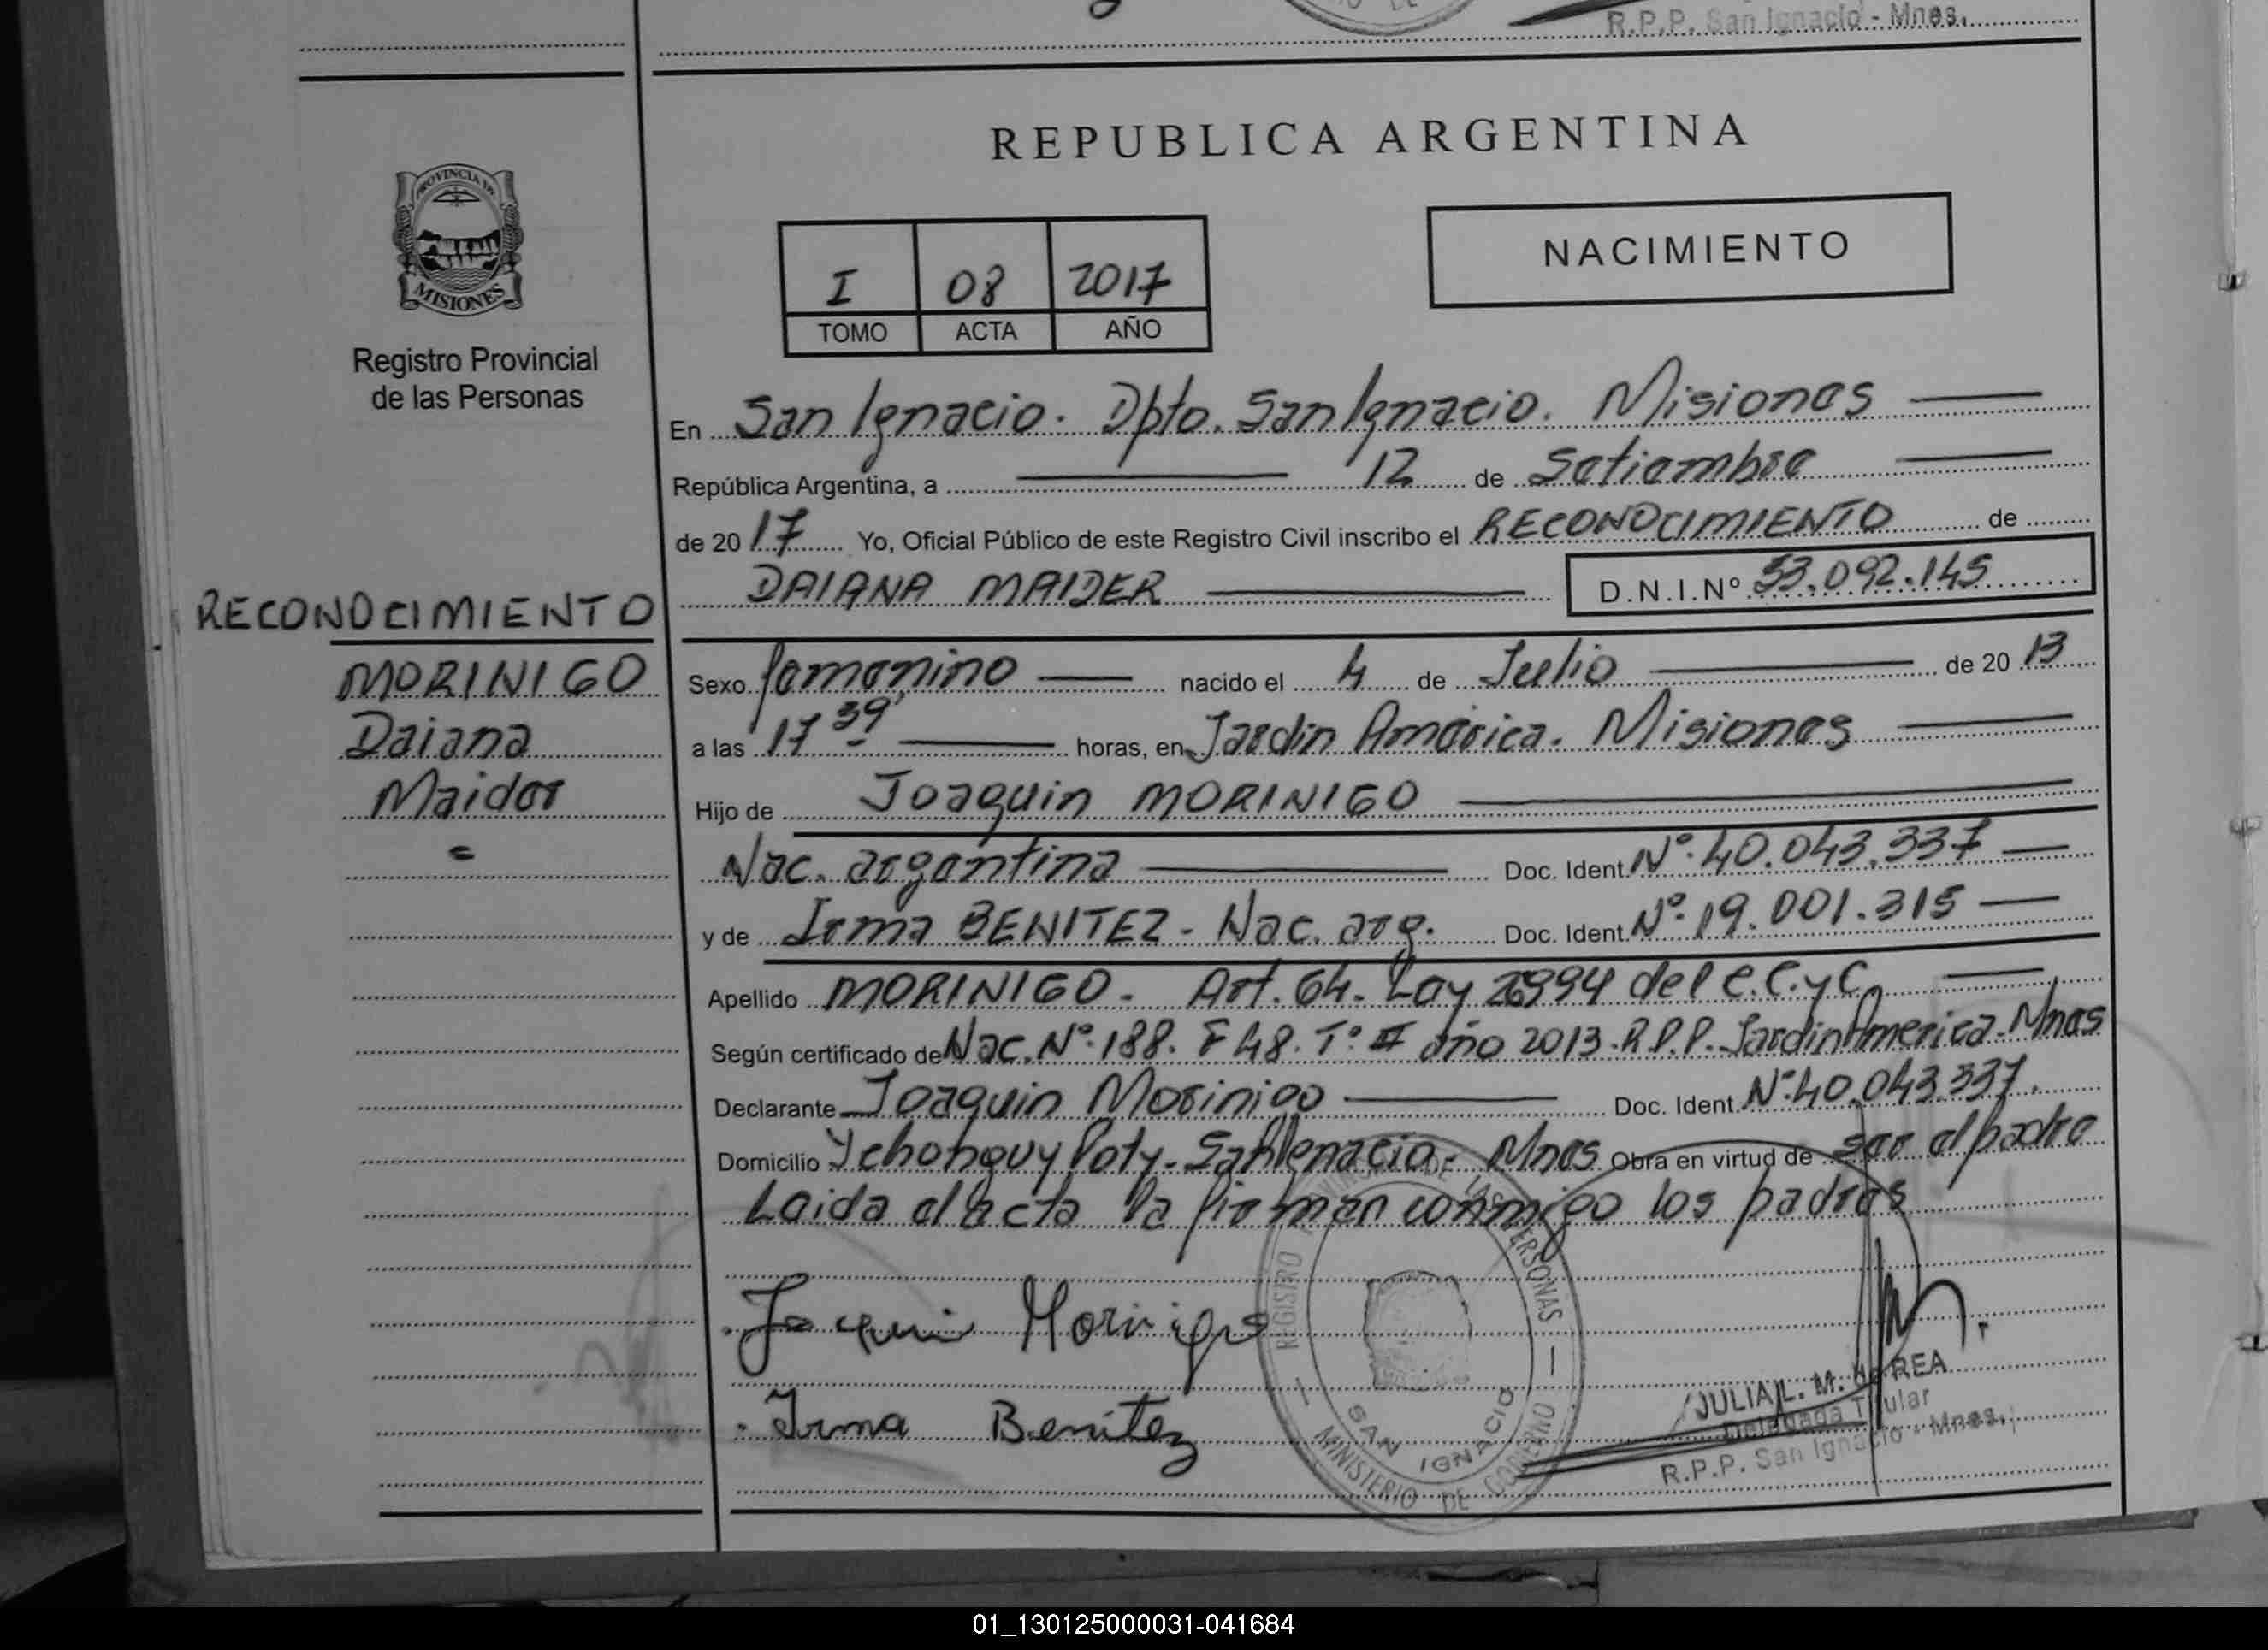 R.P.P. San Ignacio - Mnes.
REPUBLICA ARGENTINA
PROVINCIA DE
MISIONES
Registro Provincial
de las Personas
I 08 2017
TOMO ACTA AÑO
NACIMIENTO
En San Ignacio. Dpto. San Ignacio. Misiones
República Argentina, a 12 de Setiembre
de 20 17 Yo, Oficial Público de este Registro Civil inscribo el RECONOCIMIENTO de
DAIANA MAIDER D.N.I.Nº 53.092.145
RECONOCIMIENTO
MORINIGO
Daiana
Maider
Sexo femenino nacido el 4 de Julio de 20 13
a las 17 39' horas, en Jardin América. Misiones
Hijo de Joaquin MORINIGO
Nac. argentina Doc. Ident. Nº 40.043.337
y de Irma BENITEZ - Nac. arg. Doc. Ident. Nº 19.001.315
Apellido MORINIGO - Art. 64. Ley 26994 del C.C.y C.
Según certificado de Nac. Nº 188. F 48. Tº II año 2013. R.P.P. Jardin America - Mnes
Declarante Joaquin Morinigo Doc. Ident Nº 40.043.337.
Domicilio Poty - San Ignacio - Mnes Obra en virtud de ser el padre
Leida el acta la firman conmigo los padres
Joaquin Morinigo
Irma Benitez
REGISTRO DE LAS PERSONAS
SAN IGNACIO
MINISTERIO DE GOBIERNO
JULIA L. M.
Delegada Titular
R.P.P. San Ignacio - Mnes.
01_130125000031-041684